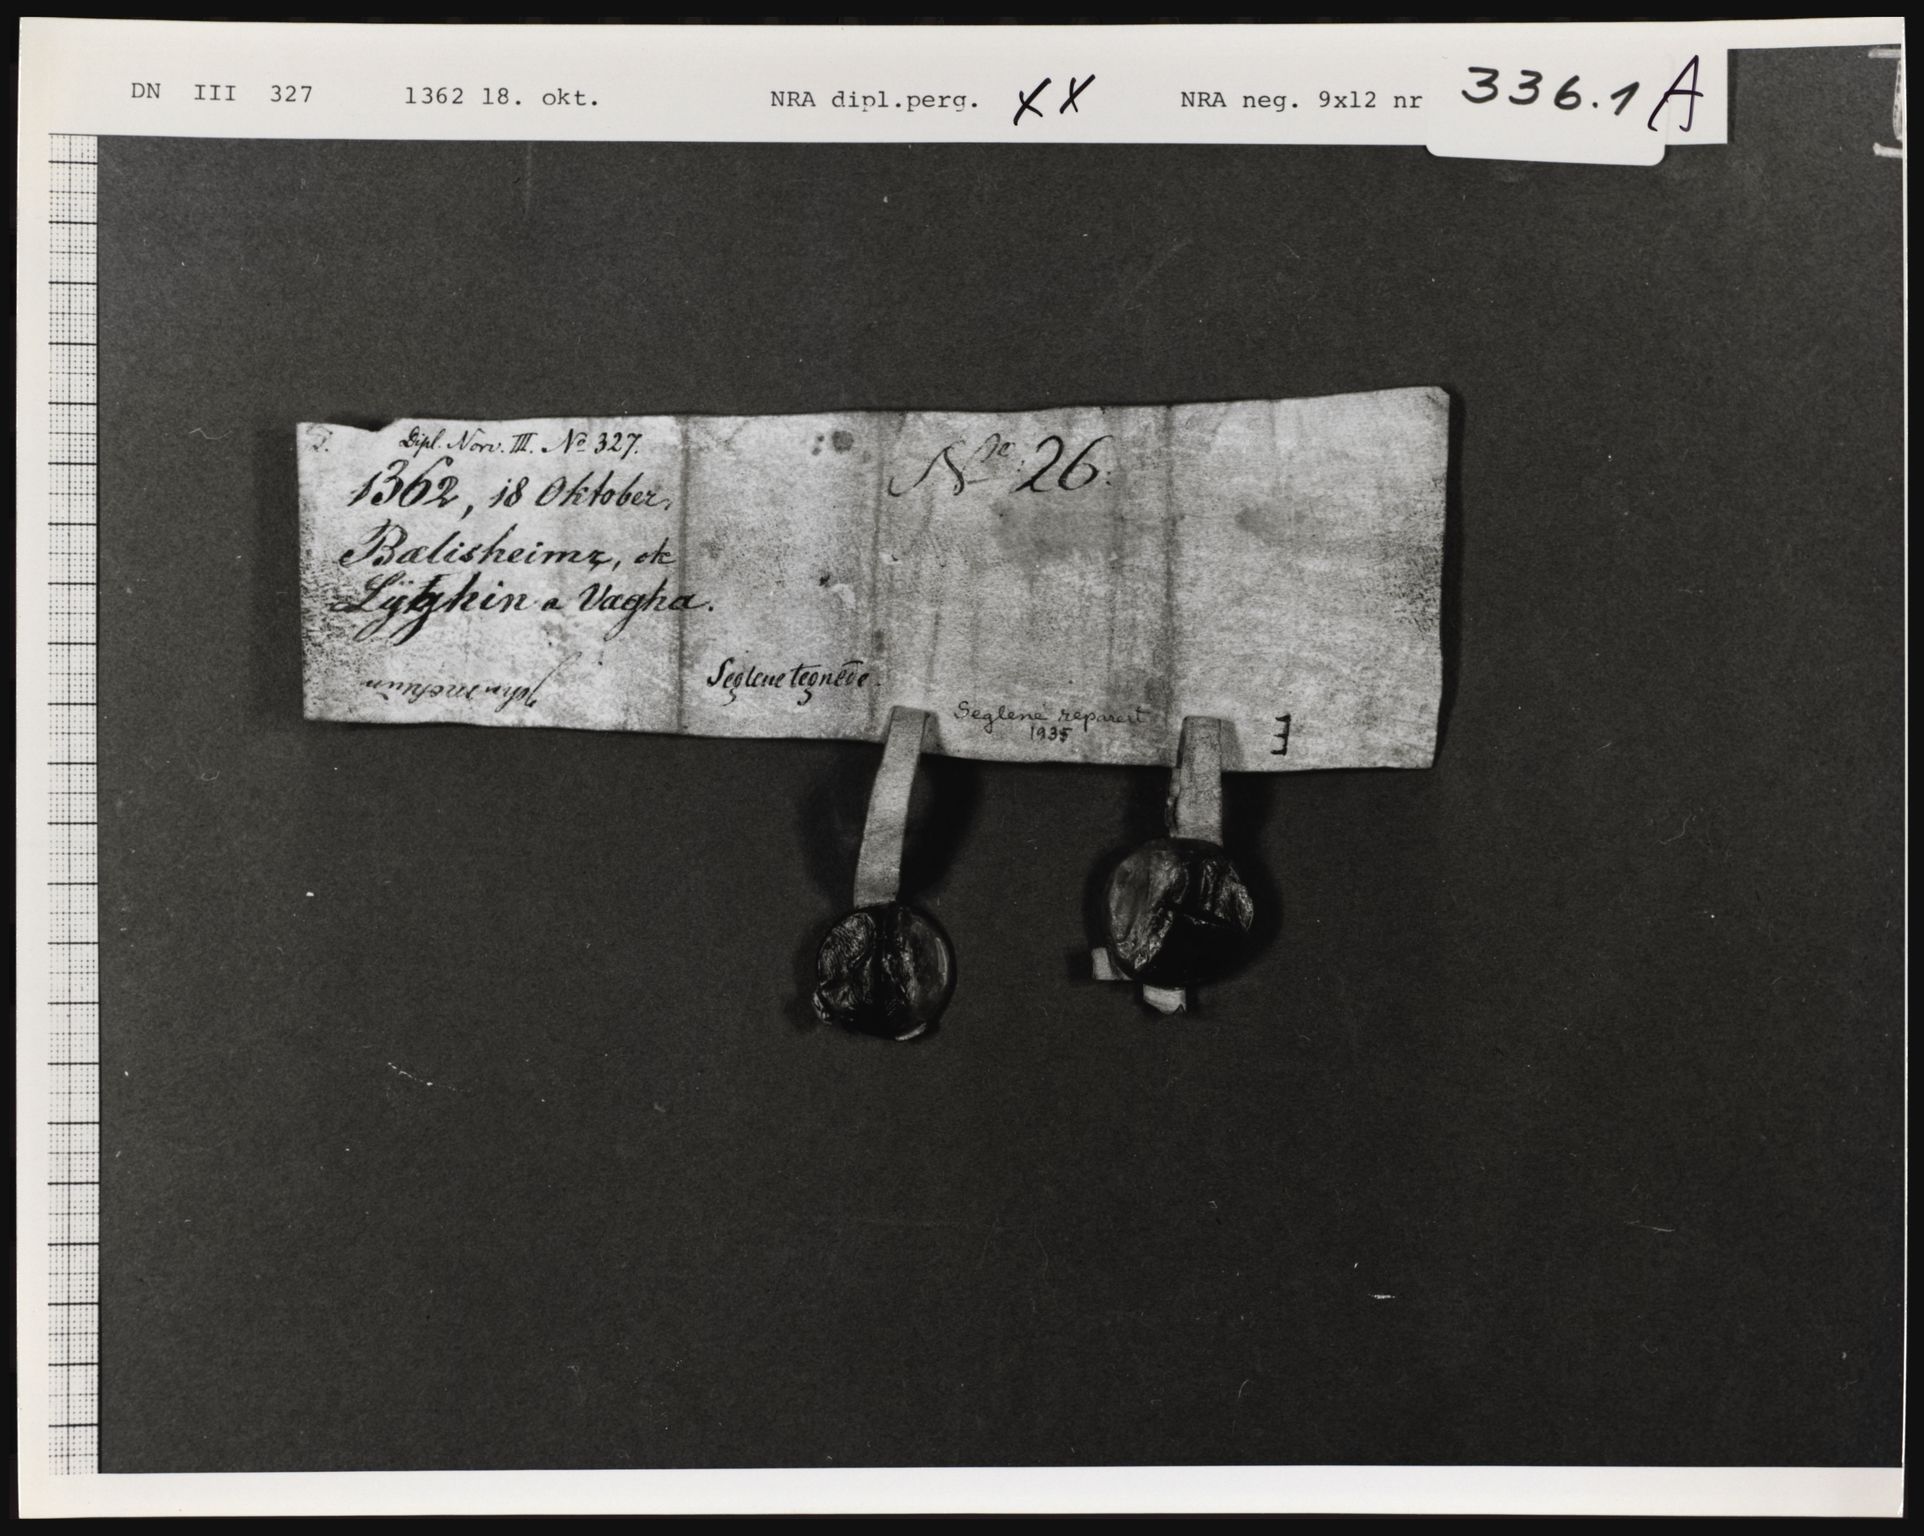 DN III 327 1362 18. okt. NRA dipl.perg. XX NRA neg. 9x12 nr 336.1 A
Dipl. Norv. III. No 327.
1362, 18 Oktober.
Bælisheimr, ok
Lÿtghin a Vagha.
No 26.
Seglene tegnede.
Seglene reparert
1935